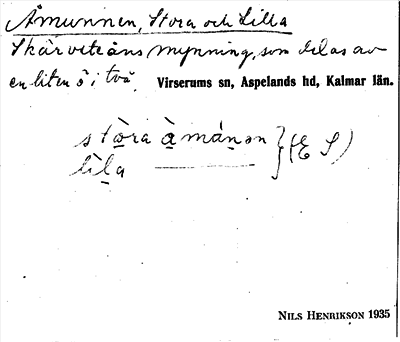 Åmunnen, Stora och Lilla
Skärveteåns mynning, som delas av
en liten ö i två. Virserums sn, Aspelands hd, Kalmar län.
stòra à̱mánən } (E S)
lìḻa ———
NILS HENRIKSON 1935